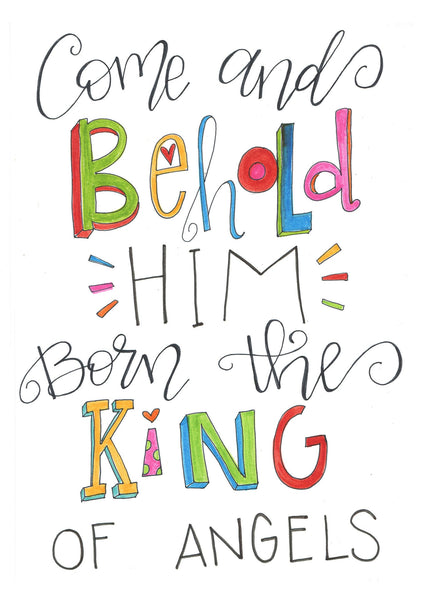 Come and
BeholD
HIM
Born the
KiNG
OF ANGELS